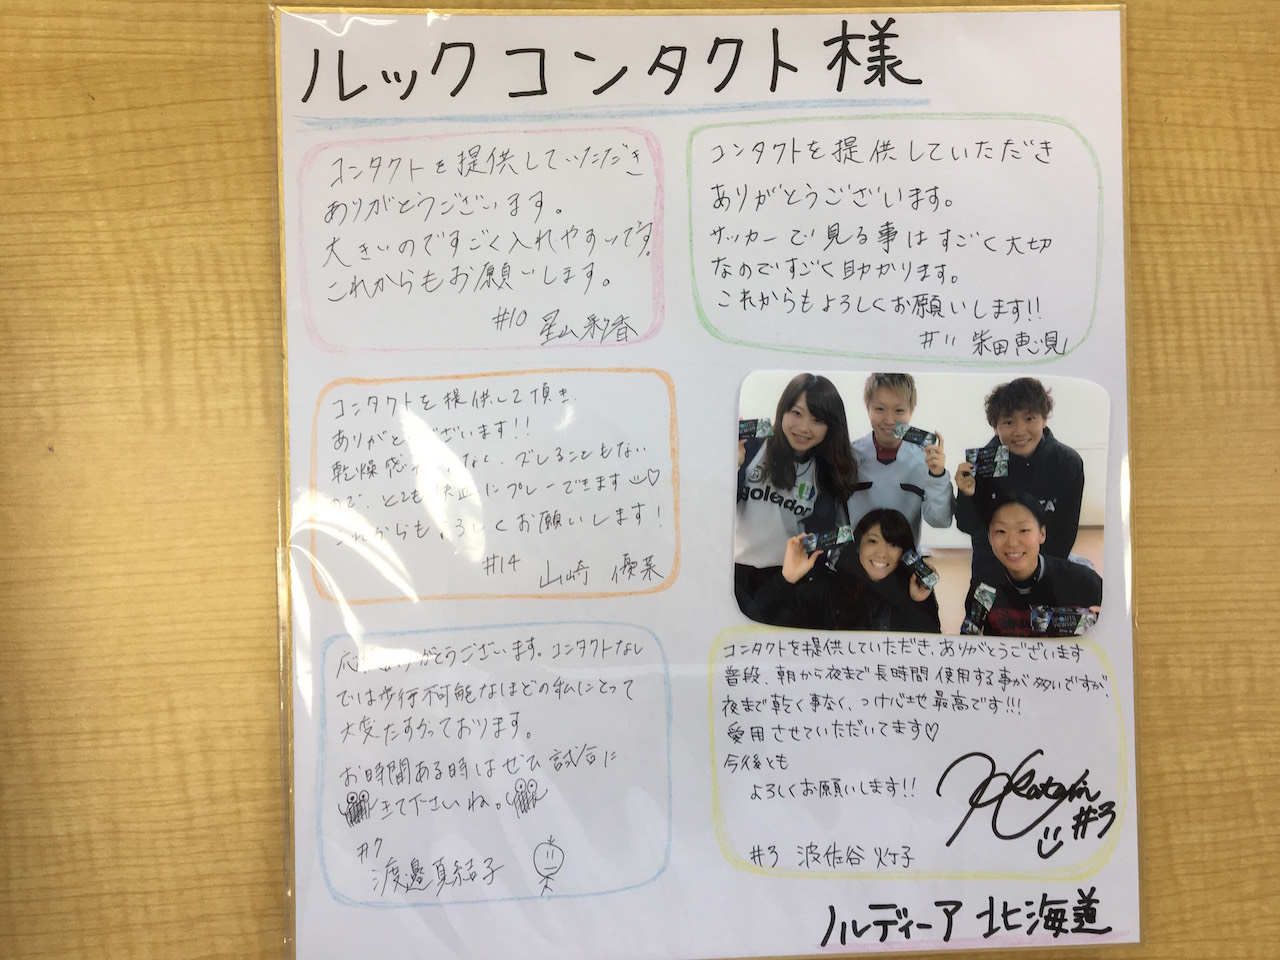 ルックコンタクト様
コンタクトを提供していただき
ありがとうございます。
大きいのですごく入れやすいです。
これからもお願いします。
#10 星山彩香
コンタクトを提供していただき
ありがとうございます。
サッカーで見る事はすごく大切
なのですごく助かります。
これからもよろしくお願いします!!
#11 柴田恵見
コンタクトを提供して頂き
ありがとうございます!!
乾燥感 なく、ズレることもない
ので、とても 快適にプレーできます♡
これからもよろしくお願いします!
#14 山崎 優菜
goleador
SPORTS
VIEWING
応 ありがとうございます。コンタクトなし
では歩行不可能なほどの私にとって
大変たすかっております。
お時間ある時はぜひ試合に
きて下さいね。
#7
渡邉真結子
コンタクトを提供していただき、ありがとうございます
普段、朝から夜まで長時間使用する事が多いですが、
夜まで乾く事なく、つけ心地最高です!!!
愛用させていただいてます♡
今後とも
よろしくお願いします!!
#3
#3 波佐谷 灯子
ノルディーア北海道